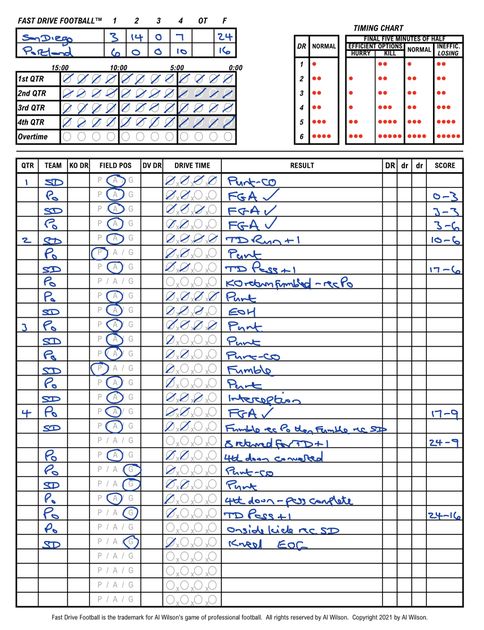 FAST DRIVE FOOTBALL™ 1 2 3 4 OT F
San Diego 3 14 0 7 24
Portland 6 0 0 10 16
15:00 10:00 5:00 0:00
1st QTR
2nd QTR
3rd QTR
4th QTR
Overtime
TIMING CHART
FINAL FIVE MINUTES OF HALF
DR NORMAL EFFICIENT OPTIONS NORMAL INEFFIC.
HURRY KILL LOSING
1
2
3
4
5
6
QTR TEAM KO DR FIELD POS DV DR DRIVE TIME RESULT DR dr dr SCORE
1 SD P A G Punt-CO
Po P A G FGA ✓ 0-3
SD P A G FGA ✓ 3-3
Po P A G FGA ✓ 3-6
2 SD P A G TD Run +1 10-6
Po P / A / G Punt
SD P A G TD Pass +1 17-6
Po P / A / G KO return fumbled - rec Po
Po P A G Punt
SD P A G EOH
3 Po P A G Punt
SD P A G Punt
Po P A G Punt-CO
SD P A / G Fumble
Po P A G Punt
SD P A G Interception
4 Po P A G FGA ✓ 17-9
SD P A G Fumble rec Po then Fumble rec SD
P / A / G & returned for TD +1 24-9
Po P A G 4th down converted
Po P / A G Punt-co
SD P / A G Punt
Po P A G 4th down - pass complete
Po P / A / G TD Pass +1 24-16
Po P / A / G Onside kick rec SD
SD P / A G Kneel EOG
P / A / G
P / A / G
P / A / G
P / A / G
Fast Drive Football is the trademark for Al Wilson's game of professional football. All rights reserved by Al Wilson. Copyright 2021 by Al Wilson.